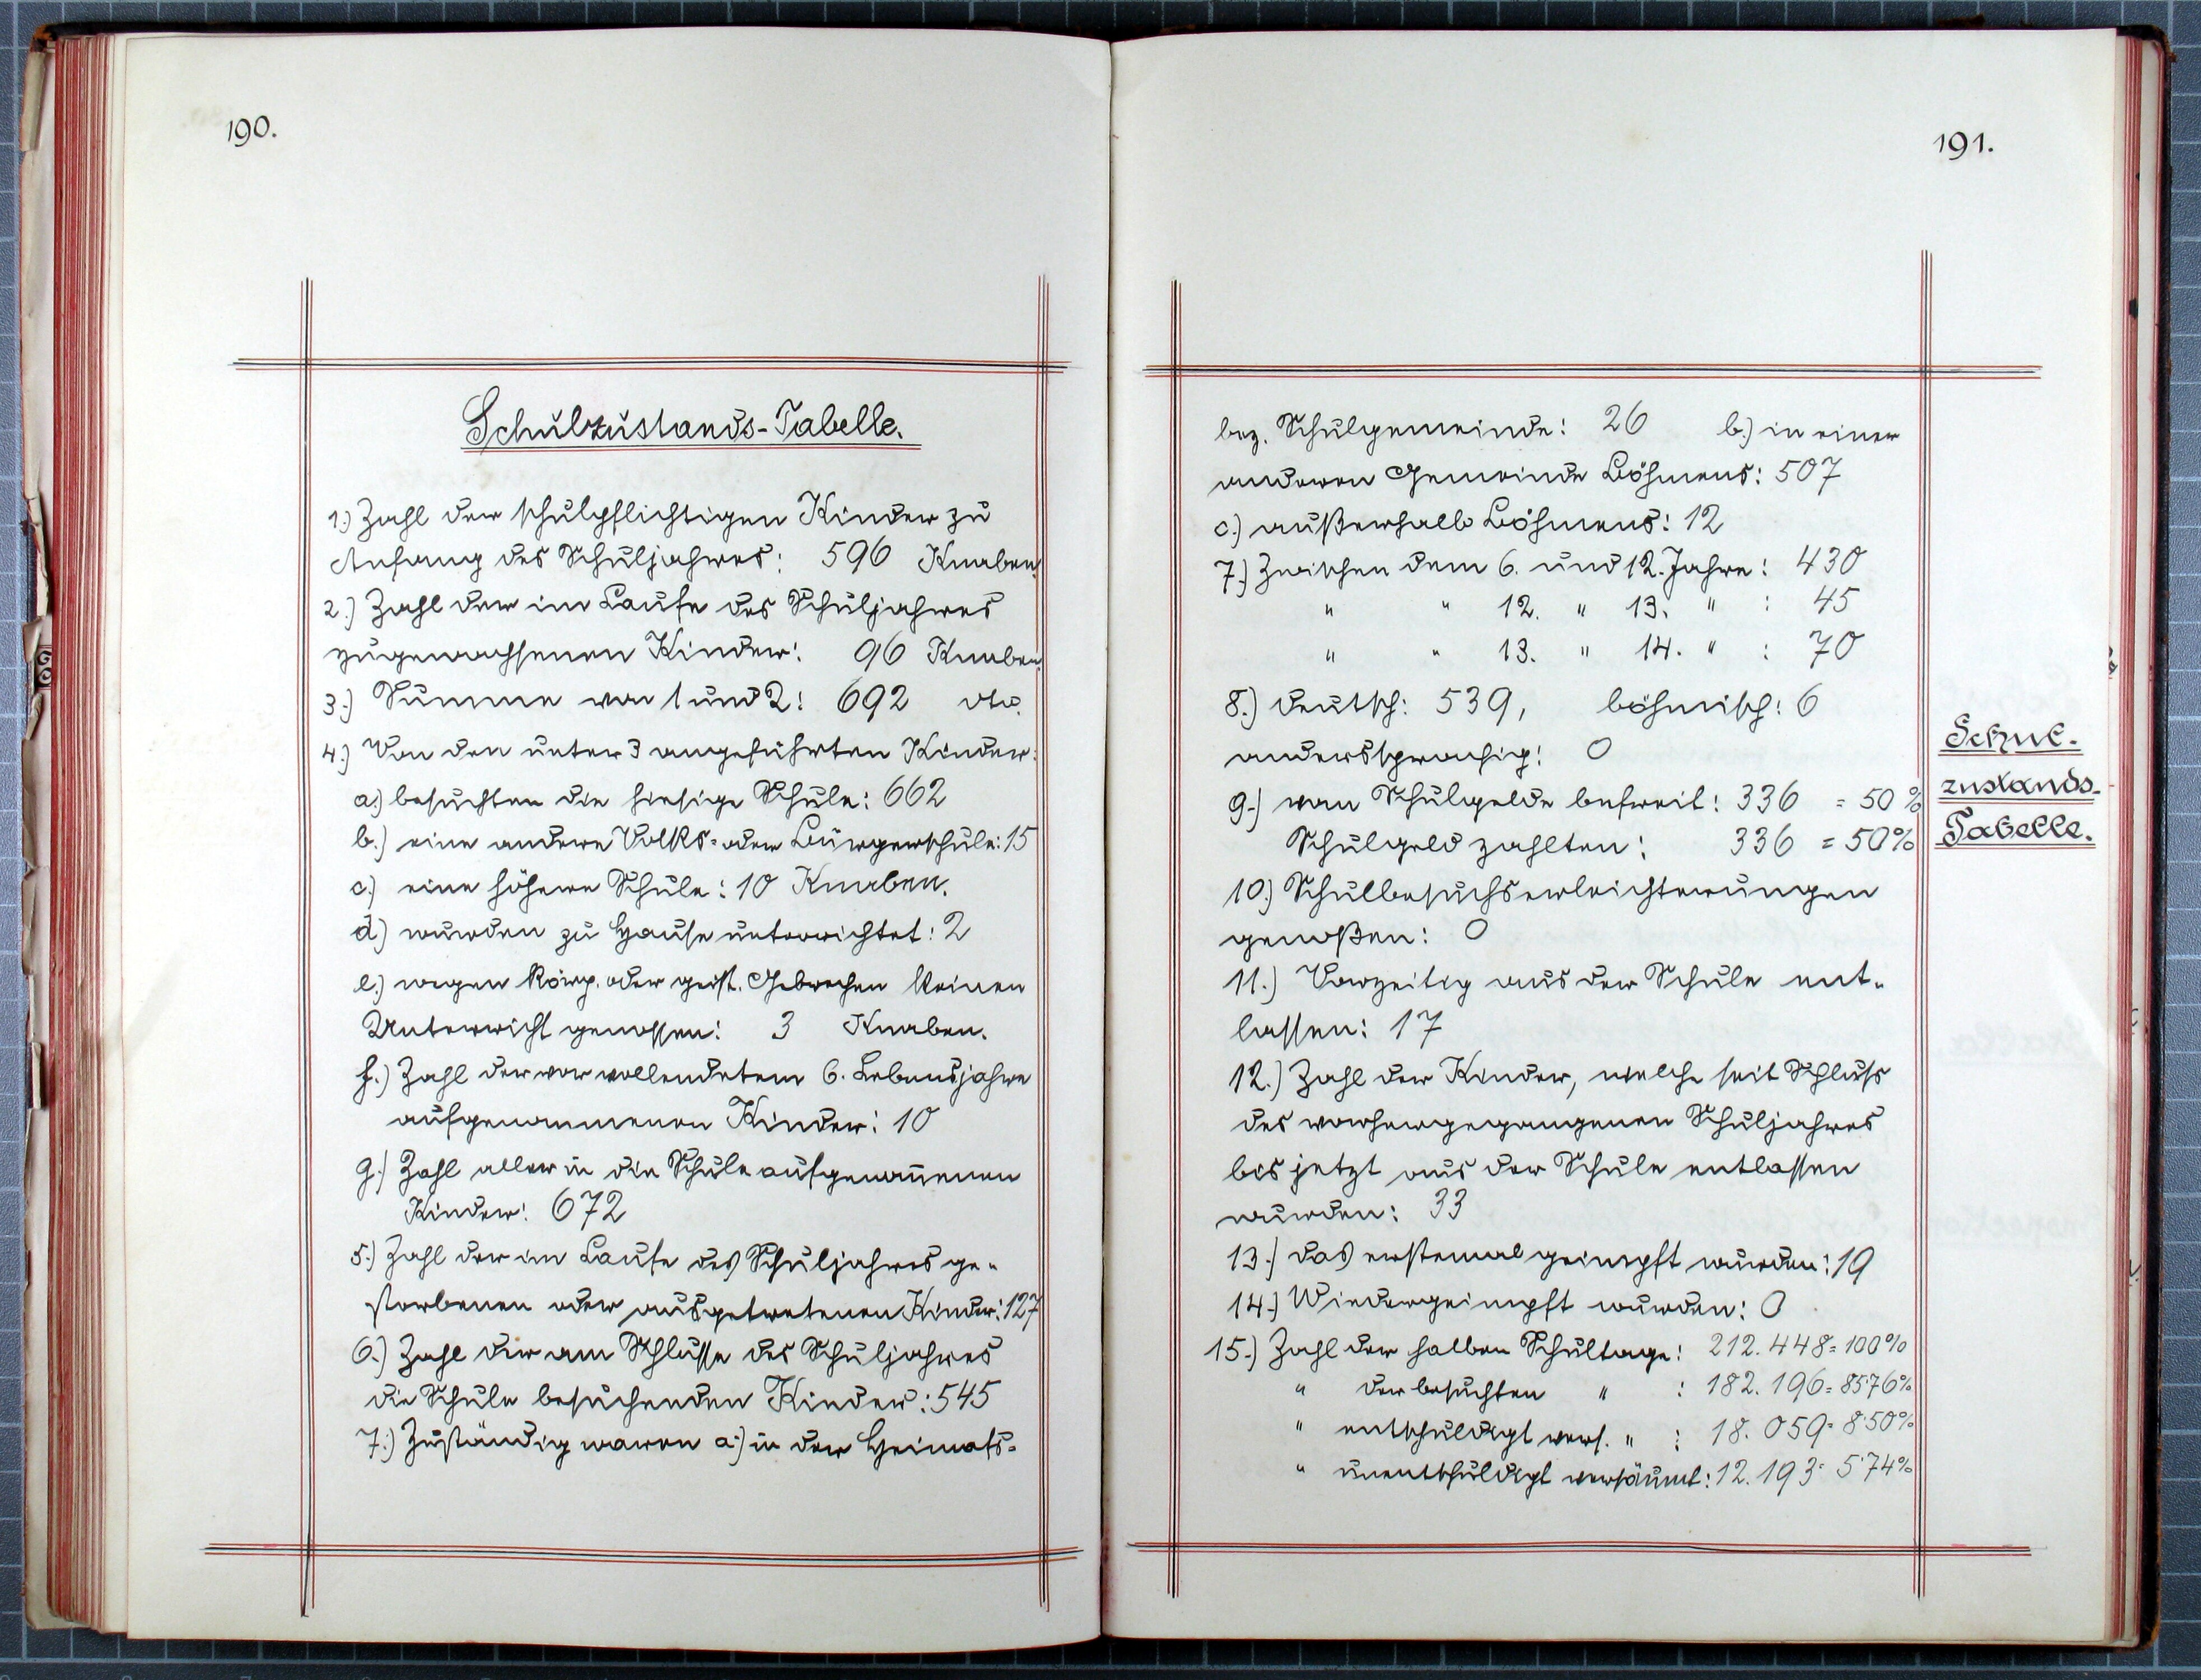 190.
Schulzustands-Tabelle.
1.) Zahl der schulpflichtigen Kinder zu
Anfang des Schuljahres: 596 Knaben
2.) Zahl der im Laufe des Schuljahres
zugewachsenen Kinder: 96 Knaben.
3.) Summe von 1 und 2: 692 dto.
4.) Von den unter 3 angeführten Kinder:
a.) besuchten die hiesige Schule: 662
b.) eine andere Volks- oder Bürgerschule: 15
c.) eine höhere Schule: 10 Knaben.
d.) wurden zu Hause unterrichtet: 2
e.) wegen körp. oder geist. Gebrechen keinen
Unterricht genossen: 3 Knaben.
f.) Zahl der vor vollendetem 6. Lebensjahre
aufgenommenen Kinder: 10
g.) Zahl aller in die Schule aufgenom̅enen
Kinder: 672
5.) Zahl der im Laufe des Schuljahres ge-
storbenen oder ausgetretenen Kinder: 127
6.) Zahl der am Schlusse des Schuljahres
die Schule besuchenden Kinder: 545
7.) Zuständig waren a.) in der Heimats-
191.
bez. Schulgemeinde: 26 b.) in einer
anderen Gemeinde Böhmens: 507
c.) außerhalb Böhmens: 12
7.) Zwischen dem 6. und 12. Jahre: 430
" " 12. " 13. " : 45
" " 13. " 14. " : 70
8.) deutsch: 539, böhmisch: 6
anderssprachig: 0
9.) vom Schulgelde befreit: 336 = 50 %
Schulgeld zahlten: 336 = 50%
10.) Schulbesuchserleichterungen
genoßen: 0
11.) Vorzeitig aus der Schule ent-
lassen: 17
12.) Zahl der Kinder, welche seit Schluss
des vorhergegangenen Schuljahres
bis jetzt aus der Schule entlassen
wurden: 33
13.) das erstemal geimpft wurden: 19
14.) Wiedergeimpft wurden: 0
15.) Zahl der halben Schultage: 212.448 = 100%
" der besuchten " : 182.196 = 85·76%
" entschuldigt vers. " : 18.059 = 8·50%
" unentschuldigt versäumt: 12.193 = 5·74%
Schul-
zustands-
Tabelle.